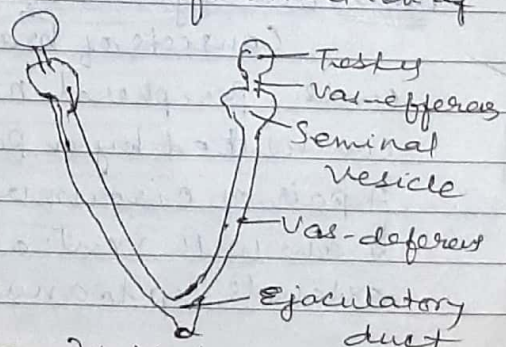 Testis
Vas-efferens
Seminal
Vesicle
Vas-deferens
Ejaculatory
duct